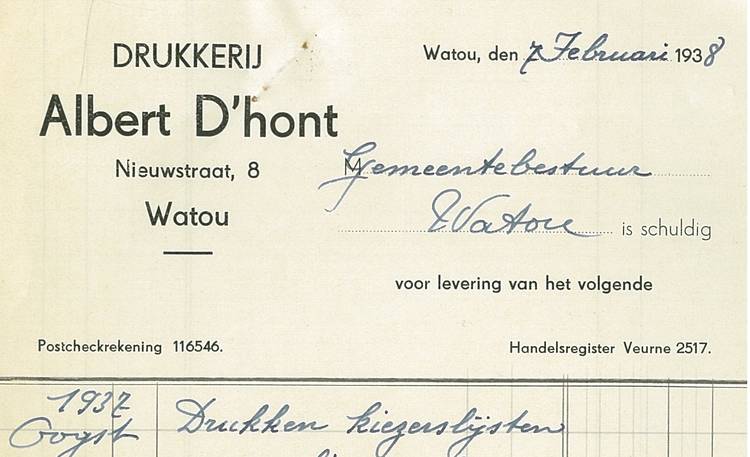 DRUKKERIJ
Albert D'hont
Nieuwstraat, 8
Watou
Watou, den 7 Februari 1938
M Gemeentebestuur
Watou is schuldig
voor levering van het volgende
Postcheckrekening 116546.
Handelsregister Veurne 2517.
1937
Oogst Drukken kiezerslijsten